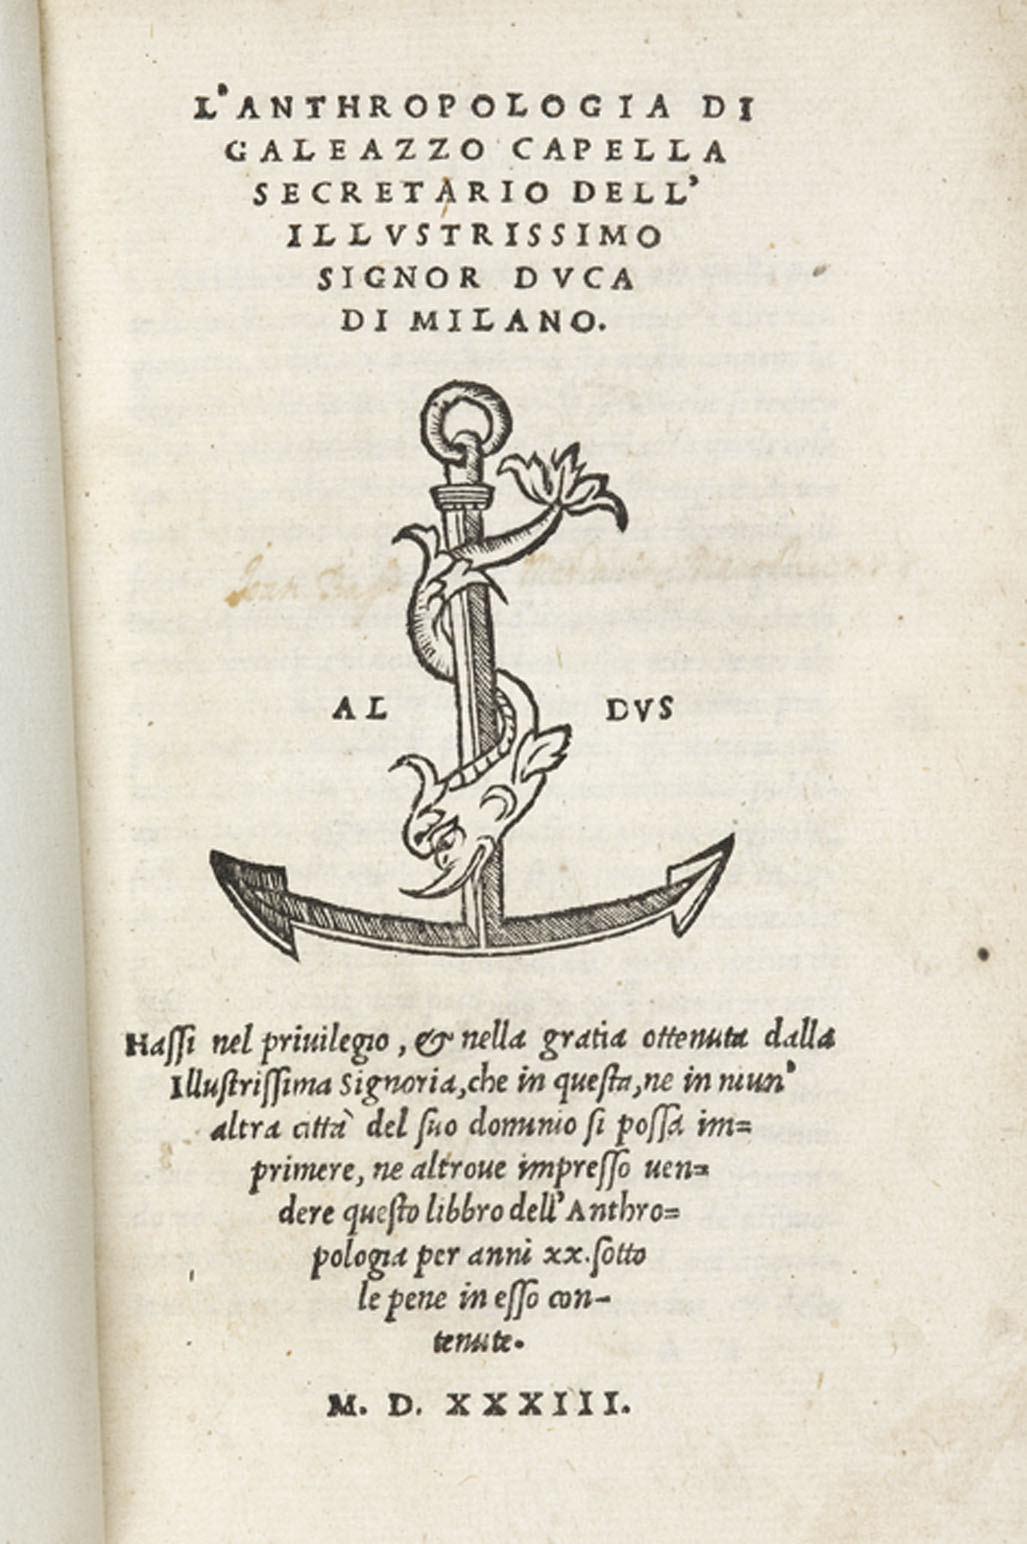 L'ANTHROPOLOGIA DI
GALEAZZO CAPELLA
SECRETARIO DELL'
ILLVSTRISSIMO
SIGNOR DVCA
DI MILANO.
AL DVS
Hassi nel priuilegio, & nella gratia ottenuta dalla
Illustrissima Signoria, che in questa, ne in niun'
altra città del suo dominio si possa im=
primere, ne altroue impresso uen=
dere questo libbro dell'Anthro=
pologia per anni xx. sotto
le pene in esso con-
tenute.
M. D. XXXIII.